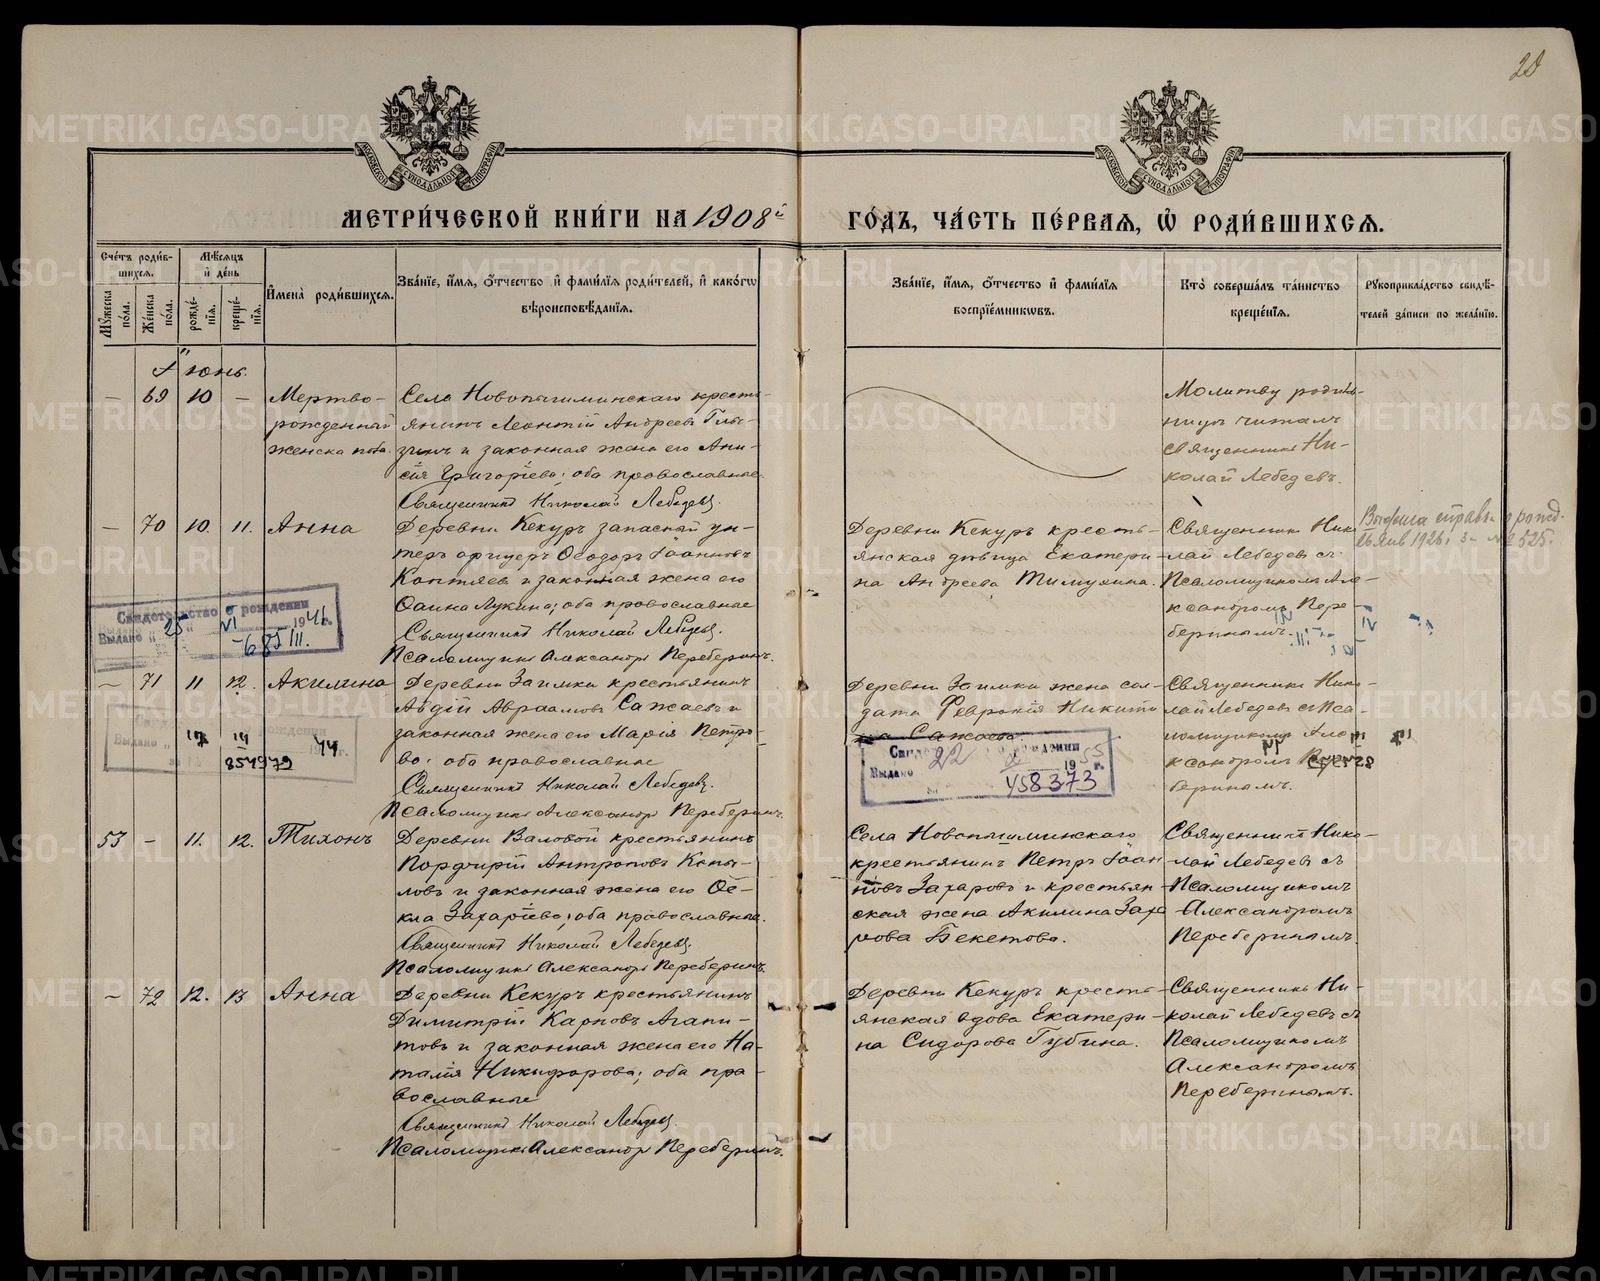 20
МЕТРИ́ЧЕСКОЙ КНИ́ГИ НА 1908й
ГО́ДЪ, ЧА́СТЬ ПЕ́РВАЯ, Ѡ҆ РОДИ́ВШИХСЯ.
Сче́тъ роди́вшихся.
Мѣ́сяцъ и҆ де́нь
Му́жеска по́ла.
Же́нска по́ла.
рожде́нїя.
креще́нїя.
И҆мена̀ роди́вшихся.
Зва́нїе, и҆́мя, ѻ҆́тчество и҆ фами́лїя роди́телей, и҆ како́гѡ
вѣроисповѣ́данїя.
Зва́нїе, и҆́мя, ѻ҆́тчество и҆ фами́лїя
воспрїе́мникѡвъ.
Кто̀ соверша́лъ та́инство
креще́нїя.
Рꙋкоприкла́дство свидѣ́-
телей за́писи по жела́нїю.
Іюнь.
— 69 10 —
Мертво-
рожденный
женска пола.
Села Новопышминскаго кресть-
янинъ Леонтій Андреевъ Глы-
зинъ и законная жена его Ани-
сія Григоріева; оба православные.
Священникъ Николай Лебедевъ.
Молитву родиль-
ницѣ читалъ
священникъ Ни-
колай Лебедевъ.
— 70 10. 11. Анна
Деревни Кекуръ запасный ун-
теръ офицеръ Ѳеодоръ Іоанновъ
Коптяевъ и законная жена его
Фаина Лукина; оба православные
Священникъ Николай Лебедевъ.
Псаломщикъ Александръ Переберинъ.
Деревни Кекуръ кресть-
янская дѣвица Екатери-
на Андреева Тимухина.
Священникъ Нико-
лай Лебедевъ съ
Псаломщикомъ Але-
ксандромъ Пере-
беринымъ.
Выдана справка о рожд.
26 янв 1926 г. за № 525.
Свидетельство о рождении
Выдано " 25 " VI 1941 г.
685 111.
— 71 11 12. Акилина
Деревни Заимки крестьянинъ
Авдій Авраамовъ Сажаевъ и
законная жена его Марія Петро-
ва; оба православные
Священникъ Николай Лебедевъ.
Псаломщикъ Александръ Переберинъ.
Деревни Заимки жена сол-
дата Февронія Никити-
на Сажаева.
Священникъ Нико-
лай Лебедевъ съ Пса-
ломщикомъ Але-
ксандромъ Пере-
беринымъ.
рождении
Выдано "
44 г.
854979
Свидет о рождении
Выдано 22 1955 г.
458373
53 — 11. 12. Тихонъ
Деревни Валовой крестьянинъ
Порфирій Антроповъ Копы-
ловъ и законная жена его Ѳе-
кла Захаріева; оба православные.
Священникъ Николай Лебедевъ.
Псаломщикъ Александръ Переберинъ.
Села Новопышминскаго
крестьянинъ Петръ Іоан-
новъ Захаровъ и крестьян-
ская жена Акилина Заха-
рова Бекетова.
Священникъ Нико-
лай Лебедевъ съ
Псаломщикомъ
Александромъ
Переберинымъ.
— 72 12. 13 Анна
Деревни Кекуръ крестьянинъ
Димитрій Карповъ Агапи-
товъ и законная жена его На-
талія Никифорова; оба пра-
вославные
Священникъ Николай Лебедевъ.
Псаломщикъ Александръ Переберинъ.
Деревни Кекуръ кресть-
янская вдова Екатери-
на Сидорова Губина.
Священникъ Ни-
колай Лебедевъ съ
Псаломщикомъ
Александромъ
Переберинымъ.
METRIKI.GASO-URAL.RU